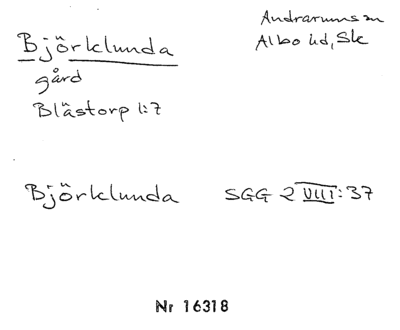 Björklunda
gård
Blästorp 1:7
Andrarums sn
Albo hd, Sk
Björklunda SGG 2 VIII:37
Nr 16318